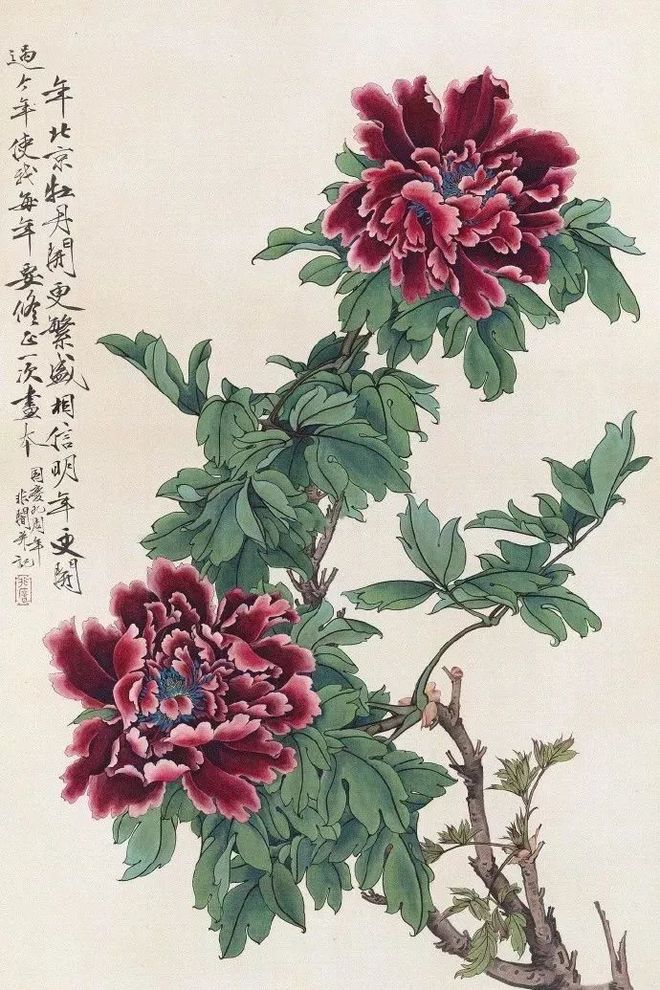 年北京牡丹開更繁盛相信明年更開
過今年使我每年要修正一次畫本
国慶九周年
非闇并記